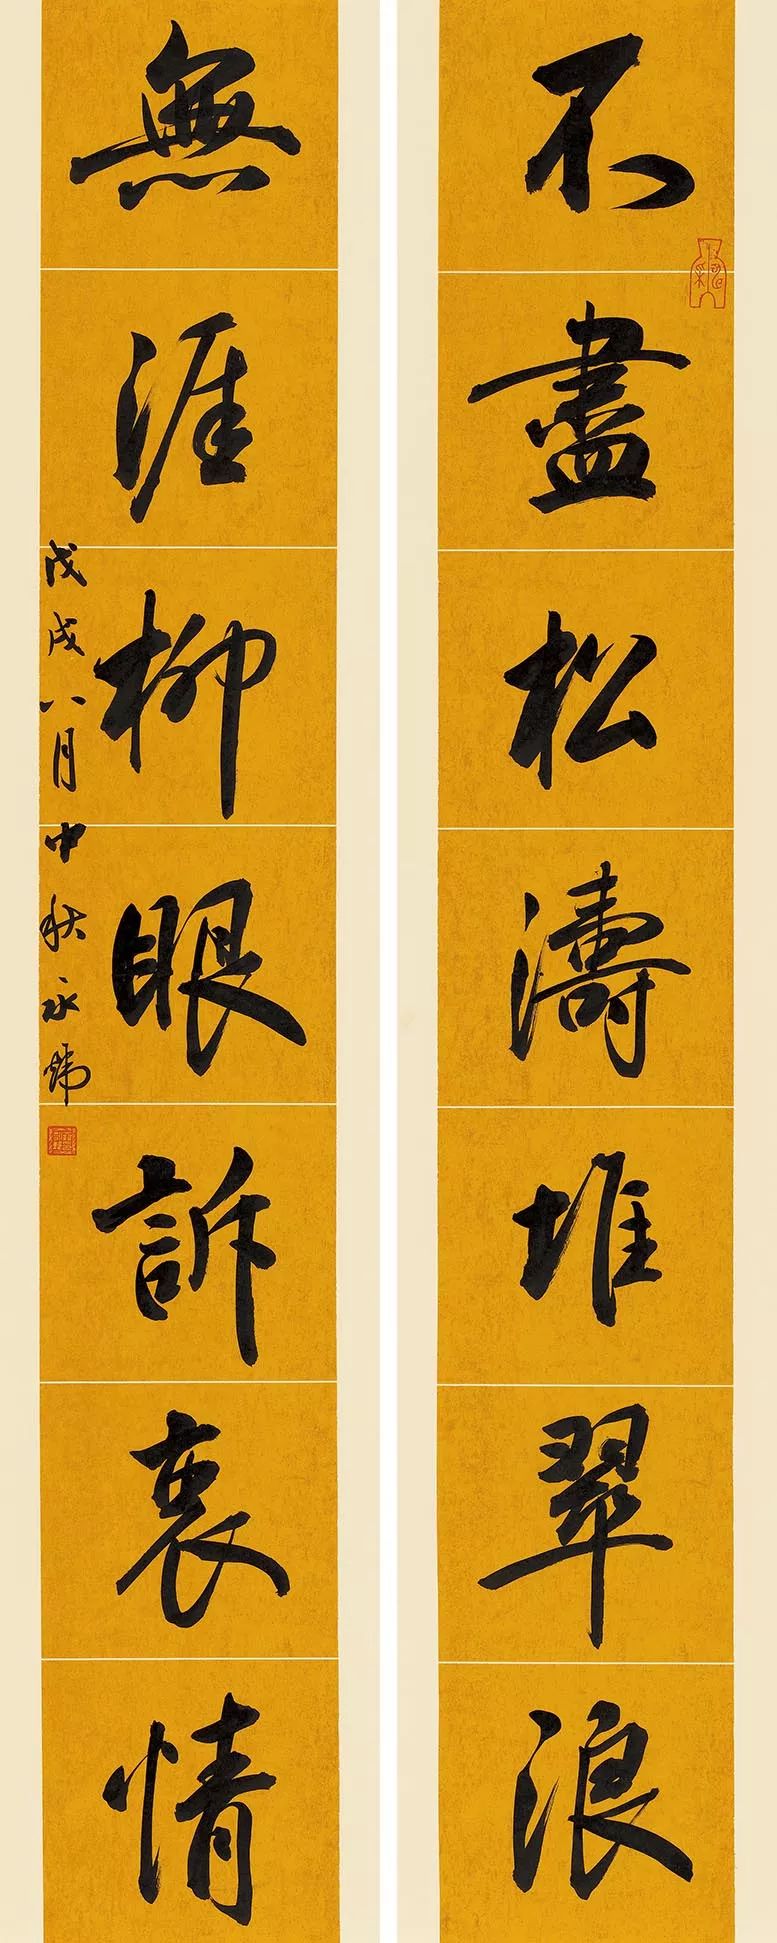 不盡松濤堆翠浪
無涯柳眼訴衷情
戊戌八月中秋永炜